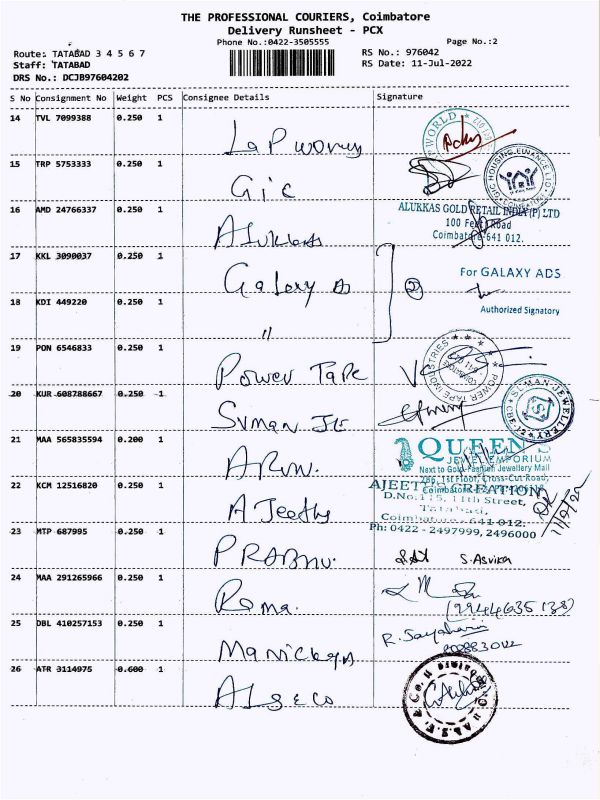 THE PROFESSIONAL COURIERS, Coimbatore
Delivery Runsheet - PCX
Phone No.:0422-3505555 Page No.:2
Route: TATABAD 3 4 5 6 7 RS No.: 976042
Staff: TATABAD RS Date: 11-Jul-2022
DRS No.: DCJB97604202
S No Consignment No Weight PCS Consignee Details Signature
14 TVL 7099388 0.250 1
Lap world
15 TRP 5753333 0.250 1
Gic
GIC HOUSING FINANCE LTD.
16 AMD 24766337 0.250 1 ALUKKAS GOLD RETAIL INDIA (P) LTD
100 Feet Road
Coimbatore-641 012.
Alukkas
17 KKL 3090037 0.250 1
For GALAXY ADS
Galaxy A
18 KDI 449220 0.250 1 Authorised Signatory
"
19 PON 6546833 0.250 1
POWER TAPE INDUSTRIES
Power Tape
20 KUR 608788667 0.250 1
SUMAN JEWELLERY
Suman Je
21 MAA 565835594 0.200 1 QUEEN'S
JEWEL EMPORIUM
Next to Gold Fashion Jewellery Mall
1st Floor, Cross-Cut Road,
Arun.
22 KCM 12516820 0.250 1 AJEETHS CREATION
D.No. 115, 11th Street,
Tatabad,
Coimbatore - 641 012.
A Jeeths
23 MTP 687995 0.250 1 Ph: 0422 - 2497999, 2496000
11/7/22
PRABHU. S. Asvika
24 MAA 291265966 0.250 1
Roma.
25 DBL 410257153 0.250 1
Manickam
26 ATR 3114975 0.600 1
ALS & CO